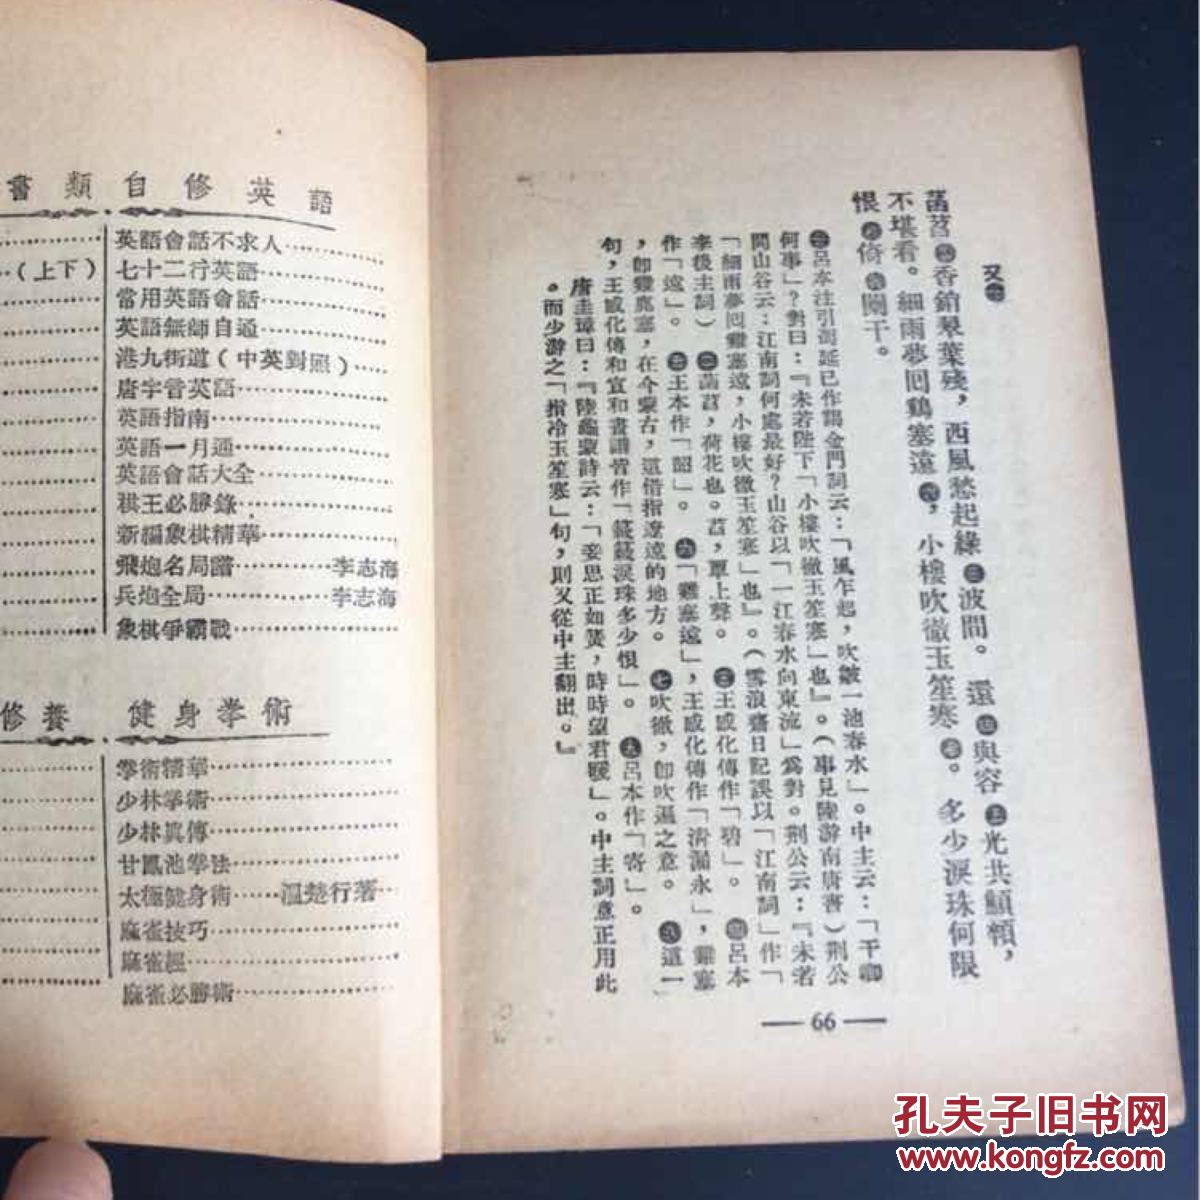 書類自修英語
英語會話不求人
…(上下)
七十二行英語
常用英語會話
英語無師自通
港九街道(中英對照)
唐字音英語
英語指南
英語一月通
英語會話大全
棋王必勝錄
新編象棋精華
飛炮名局譜…李志海
兵炮全局…李志海
象棋爭霸戰
修養 健身拳術
拳術精華
少林拳術
少林真傳
甘鳳池拳法
太極健身術…溫楚行著
麻雀技巧
麻雀經
麻雀必勝術
又㊀
菡萏㊁香銷翠葉殘，西風愁起綠㊂波間。還㊃與容㊄光共顦顇，
不堪看。細雨夢回鷄塞遠㊅，小樓吹徹玉笙寒㊆。多少淚珠何限
恨㊇倚㊈闌干。
㊀呂本注引馮延巳作謁金門詞云：「風乍起，吹皺一池春水」。中主云：「干卿
何事」？對曰：『未若陛下「小樓吹徹玉笙寒」也』。(事見陸游南唐書)荆公
問山谷云：江南詞何處最好？山谷以「一江春水向東流」爲對。荆公云：『未若
「細雨夢回雞塞遠，小樓吹徹玉笙寒」也』。(雪浪齋日記誤以「江南詞」作「
李後主詞)㊁菡萏，荷花也。萏，覃上聲。㊂王感化傳作「碧」。㊃呂本
作「遠」。㊄王本作「韶」。㊅「雞塞遠」，王感化傳作「清漏永」，雞塞
，卽雞鹿塞，在今蒙古，這借指遼遠的地方。㊆吹徹，卽吹遍之意。㊇這一
句，王感化傳和宣和畫譜皆作「簌簌淚珠多少恨」。㊈呂本作「寄」。
唐圭璋曰：『陸龜蒙詩云：「妾思正如簧，時時望君暖」。中主詞意正用此
。而少游之「指冷玉笙寒」句，則又從中主翻出。』
— 66 —
孔夫子旧书网
www.kongfz.com